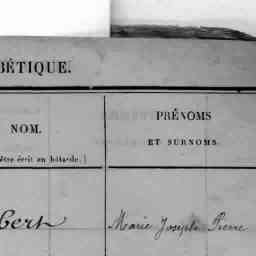 BÉTIQUE.
NOM.
être écrit en bâtarde.)
PRÉNOMS
ET SURNOMS.
bert
Marie Joseph Pierre